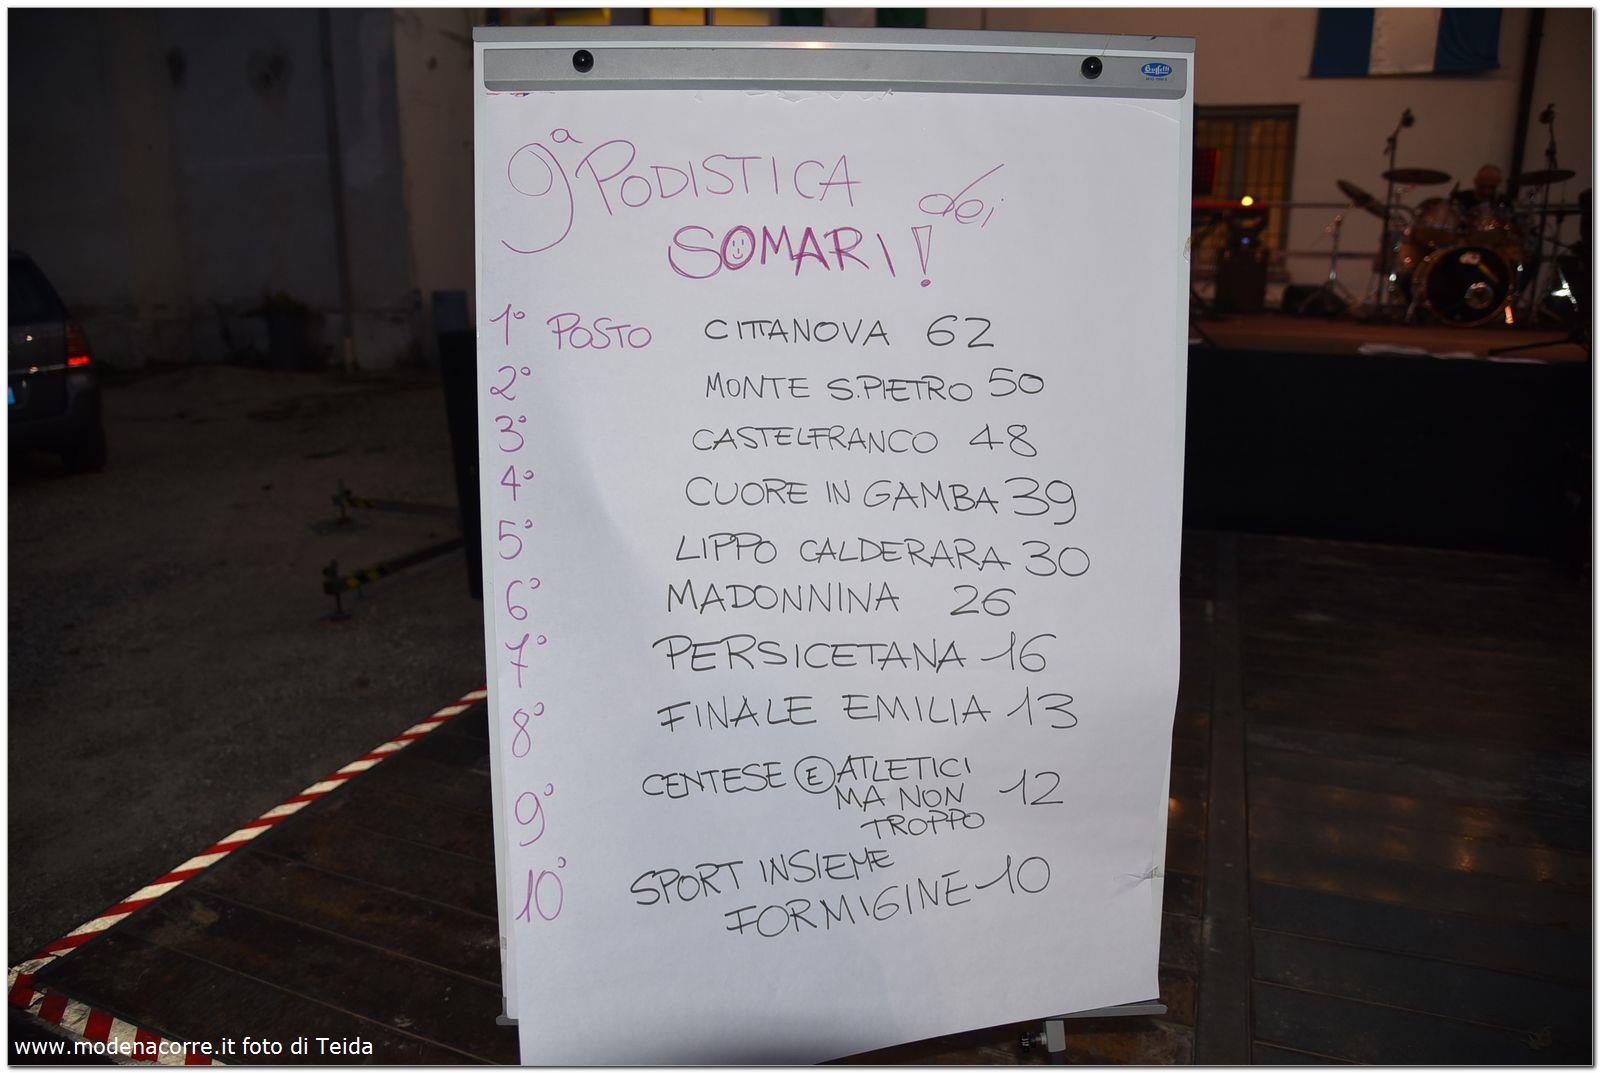 Buffetti
9ª PODISTICA dei
SOMARI!
1° POSTO CITTANOVA 62
2° MONTE S.PIETRO 50
3° CASTELFRANCO 48
4° CUORE IN GAMBA 39
5° LIPPO CALDERARA 30
6° MADONNINA 26
7° PERSICETANA 16
8° FINALE EMILIA 13
9° CENTESE E ATLETICI 12
MA NON
TROPPO
10° SPORT INSIEME
FORMIGINE 10
www.modenacorre.it foto di Teida